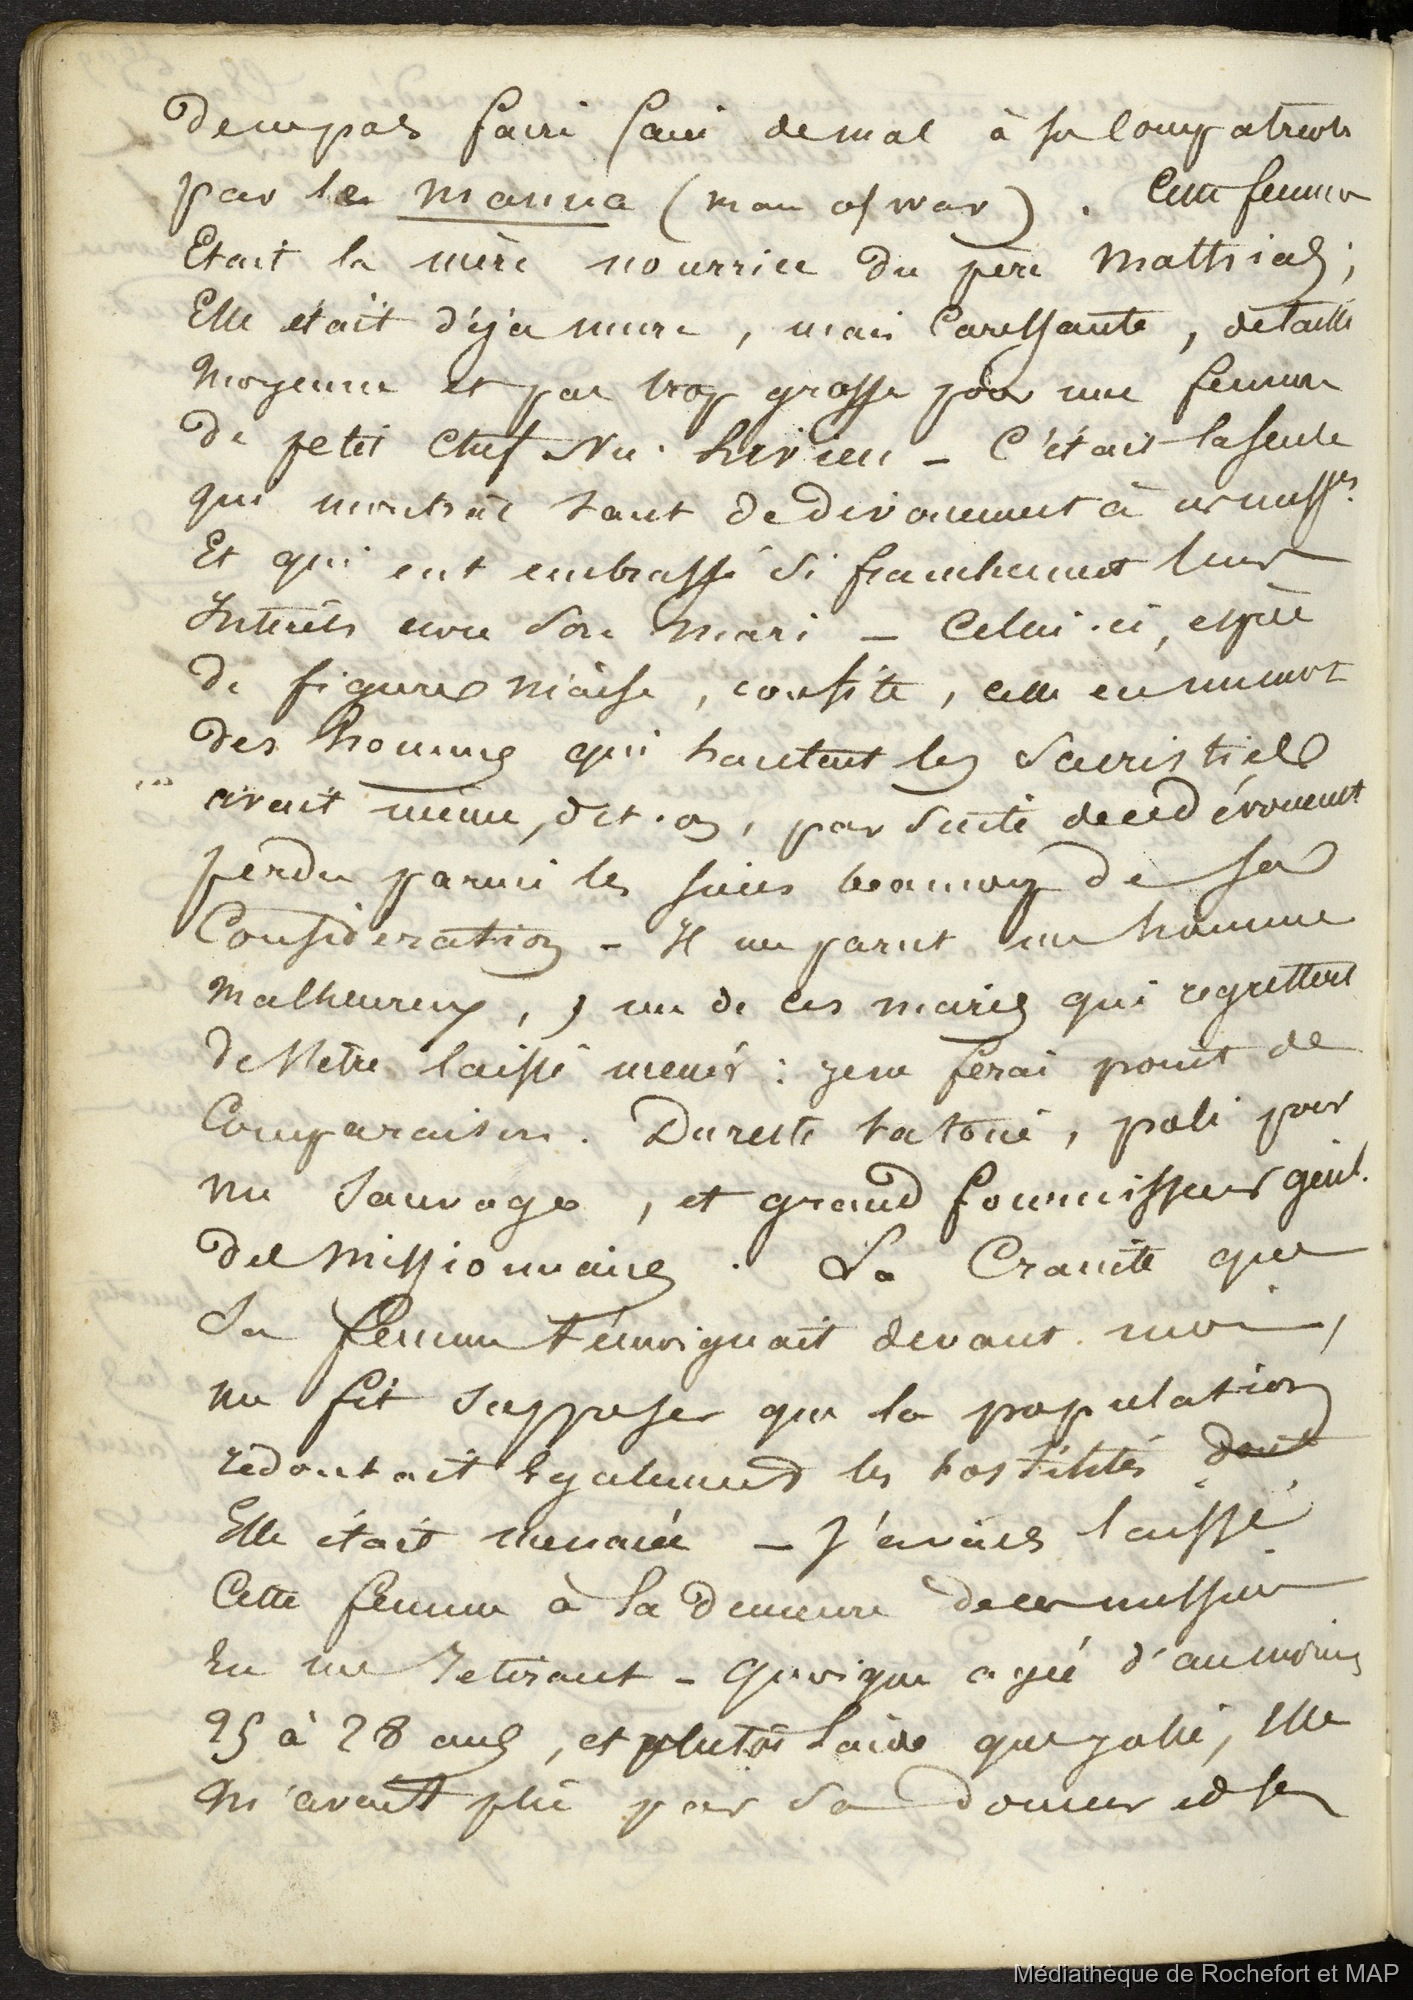 de ne pas faire faire de mal à sa compatriote
par le manua (man of war). Cette femme
Etait la mère nourrice du père Mathias;
Elle était déja mure, mais Caressante, de taille
moyenne et pas trop grosse pour une femme
de petit Chef Nu. hivien - C'était la seule
qui montrât tant de devouement à ces miss.res
Et qui eut embrassé si franchement leurs
Interêts avec son mari - Celui-ci, espèce
de figure niaise, confite, celle en un mot
des hommes qui hantent les sacristies
avait même, dit-on, par suite de ce dévouement
perdu parmi les siens beaucoup de sa
Consideration - Il me parut un homme
malheureux, un de ces maris qui regrettent
de s'être laissé mener: je ne ferai point de
Comparaison. Du reste tatoué, poli pour
un sauvage, et grand fournisseur gén.l
des Missionnaires. La Crainte que
sa femme témoignait devant moi,
me fit supposer que la population
redoutait également les hostilités dont
Elle était menacée - J'avais laissé
Cette femme à la demeure de ces messieurs
En me retirant - Quoique agée d'au moins
25 à 28 ans, et plutôt laide que jolie, Elle
m'avait plû par sa douceur et sa
Médiathèque de Rochefort et MAP